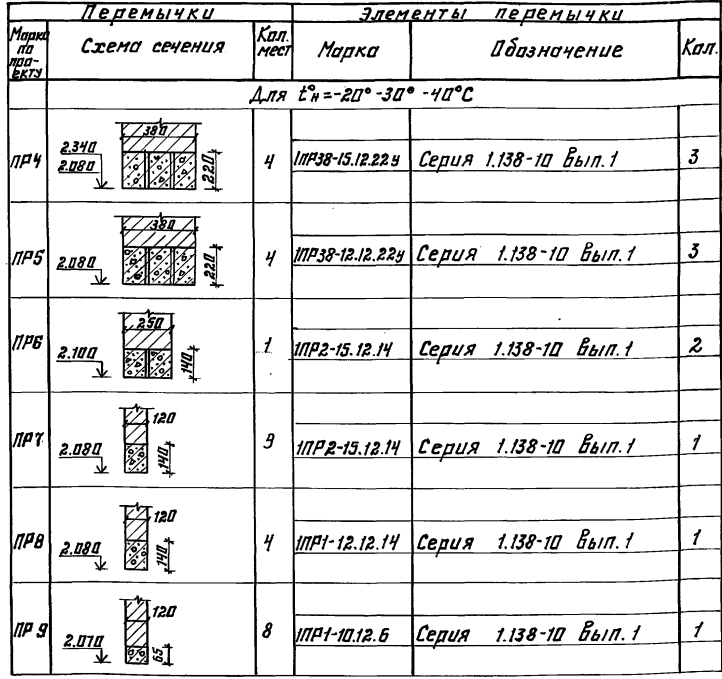 Перемычки Элементы перемычки
Марка по проекту Схема сечения Кол. мест Марка Обозначение Кол.
Для t°н=-20° -30° -40°С
ПР4 2.340 2.080 380 220 4 1ПР38-15.12.22у Серия 1.138-10 Вып.1 3
ПР5 2.080 380 220 4 1ПР38-12.12.22у Серия 1.138-10 Вып.1 3
ПР6 2.100 250 140 1 1ПР2-15.12.14 Серия 1.138-10 Вып.1 2
ПР7 2.080 120 140 9 1ПР2-15.12.14 Серия 1.138-10 Вып.1 1
ПР8 2.080 120 140 4 1ПР1-12.12.14 Серия 1.138-10 Вып.1 1
ПР9 2.070 120 65 8 1ПР1-10.12.6 Серия 1.138-10 Вып.1 1